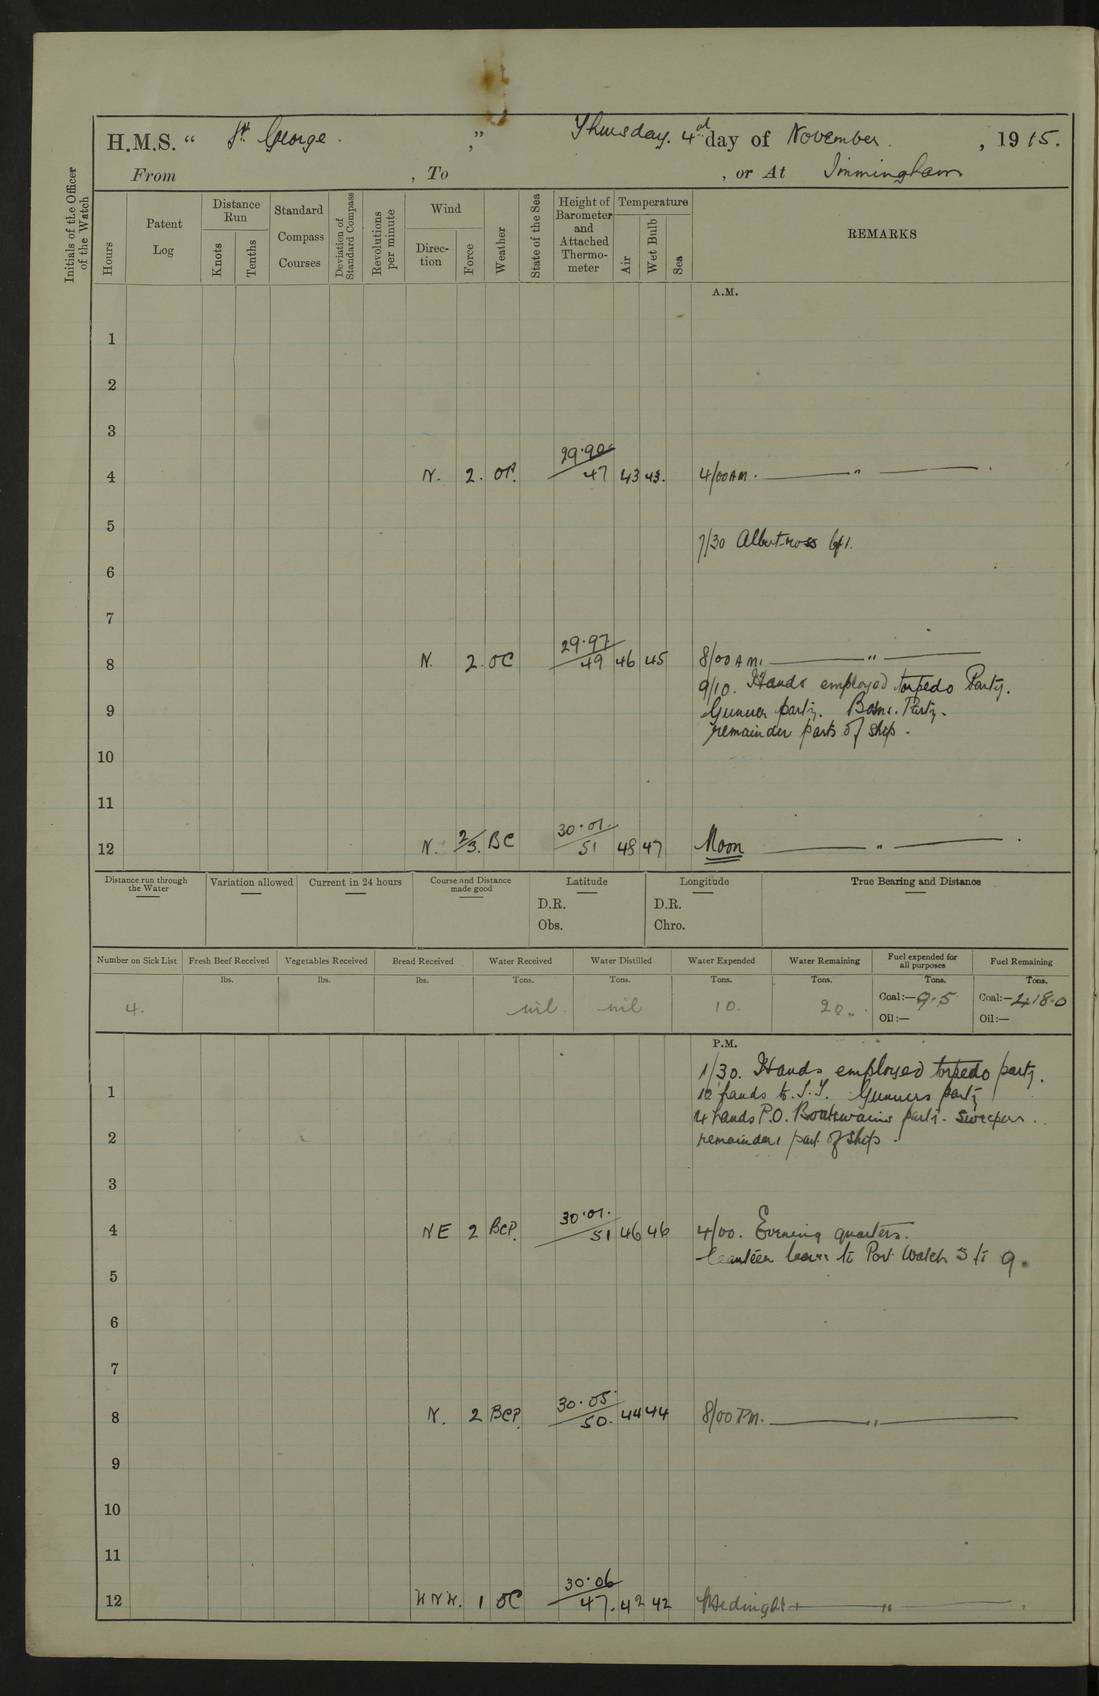 H.M.S. “ St. George. ,” Thursday. 4th day of November. , 1915.
From , To , or At Immingham
Initials of the Officer of the Watch
Hours
Patent Log
Distance Run
Knots
Tenths
Standard Compass Courses
Deviation of Standard Compass
Revolutions per minute
Wind
Direc-tion
Force
Weather
State of the Sea
Height of Barometer and Attached Thermo-meter
Temperature
Air
Wet Bulb
Sea
REMARKS
A.M.
1
2
3
4 N. 2. OP. 29.90 47 43 43. 4/00 AM. ——— " ———.
5
7/30 Albatross left.
6
7
8 N. 2. OC 29.97 49 46 45 8/00 AM. ——— " ———
9/10. Hands employed torpedo Party.
9 Gunner party. Bosns. Party.
remainder parts of ship.
10
11
12 N. 2/3. BC 30.01. 51 48 47 Noon ——— " ———.
Distance run through the Water
Variation allowed
Current in 24 hours
Course and Distance made good
Latitude
D.R.
Obs.
Longitude
D.R.
Chro.
True Bearing and Distance
Number on Sick List
Fresh Beef Received
Vegetables Received
Bread Received
Water Received
Water Distilled
Water Expended
Water Remaining
Fuel expended for all purposes
Fuel Remaining
lbs. lbs. lbs. Tons. Tons. Tons. Tons. Tons. Tons.
4. nil nil 10. 20. Coal:—9.5 Coal:—418.0
Oil:— Oil:—
P.M.
1/30. Hands employed torpedo party.
1 10 hands to S.Y. Gunners party
4 hands P.O. Boatswains party. Sweepers.
2 remainder part of ship.
3
4 NE 2 BCP. 30.01. 51 46 46 4/00. Evening quarters.
Canteen leave to Port Watch 5 to 9.
5
6
7
8 N. 2 BCP. 30.05. 50. 44 44 8/00 PM. ——— " ———
9
10
11
12 NNW. 1 OC 30.06 47. 42 42 Midnight ——— " ———.